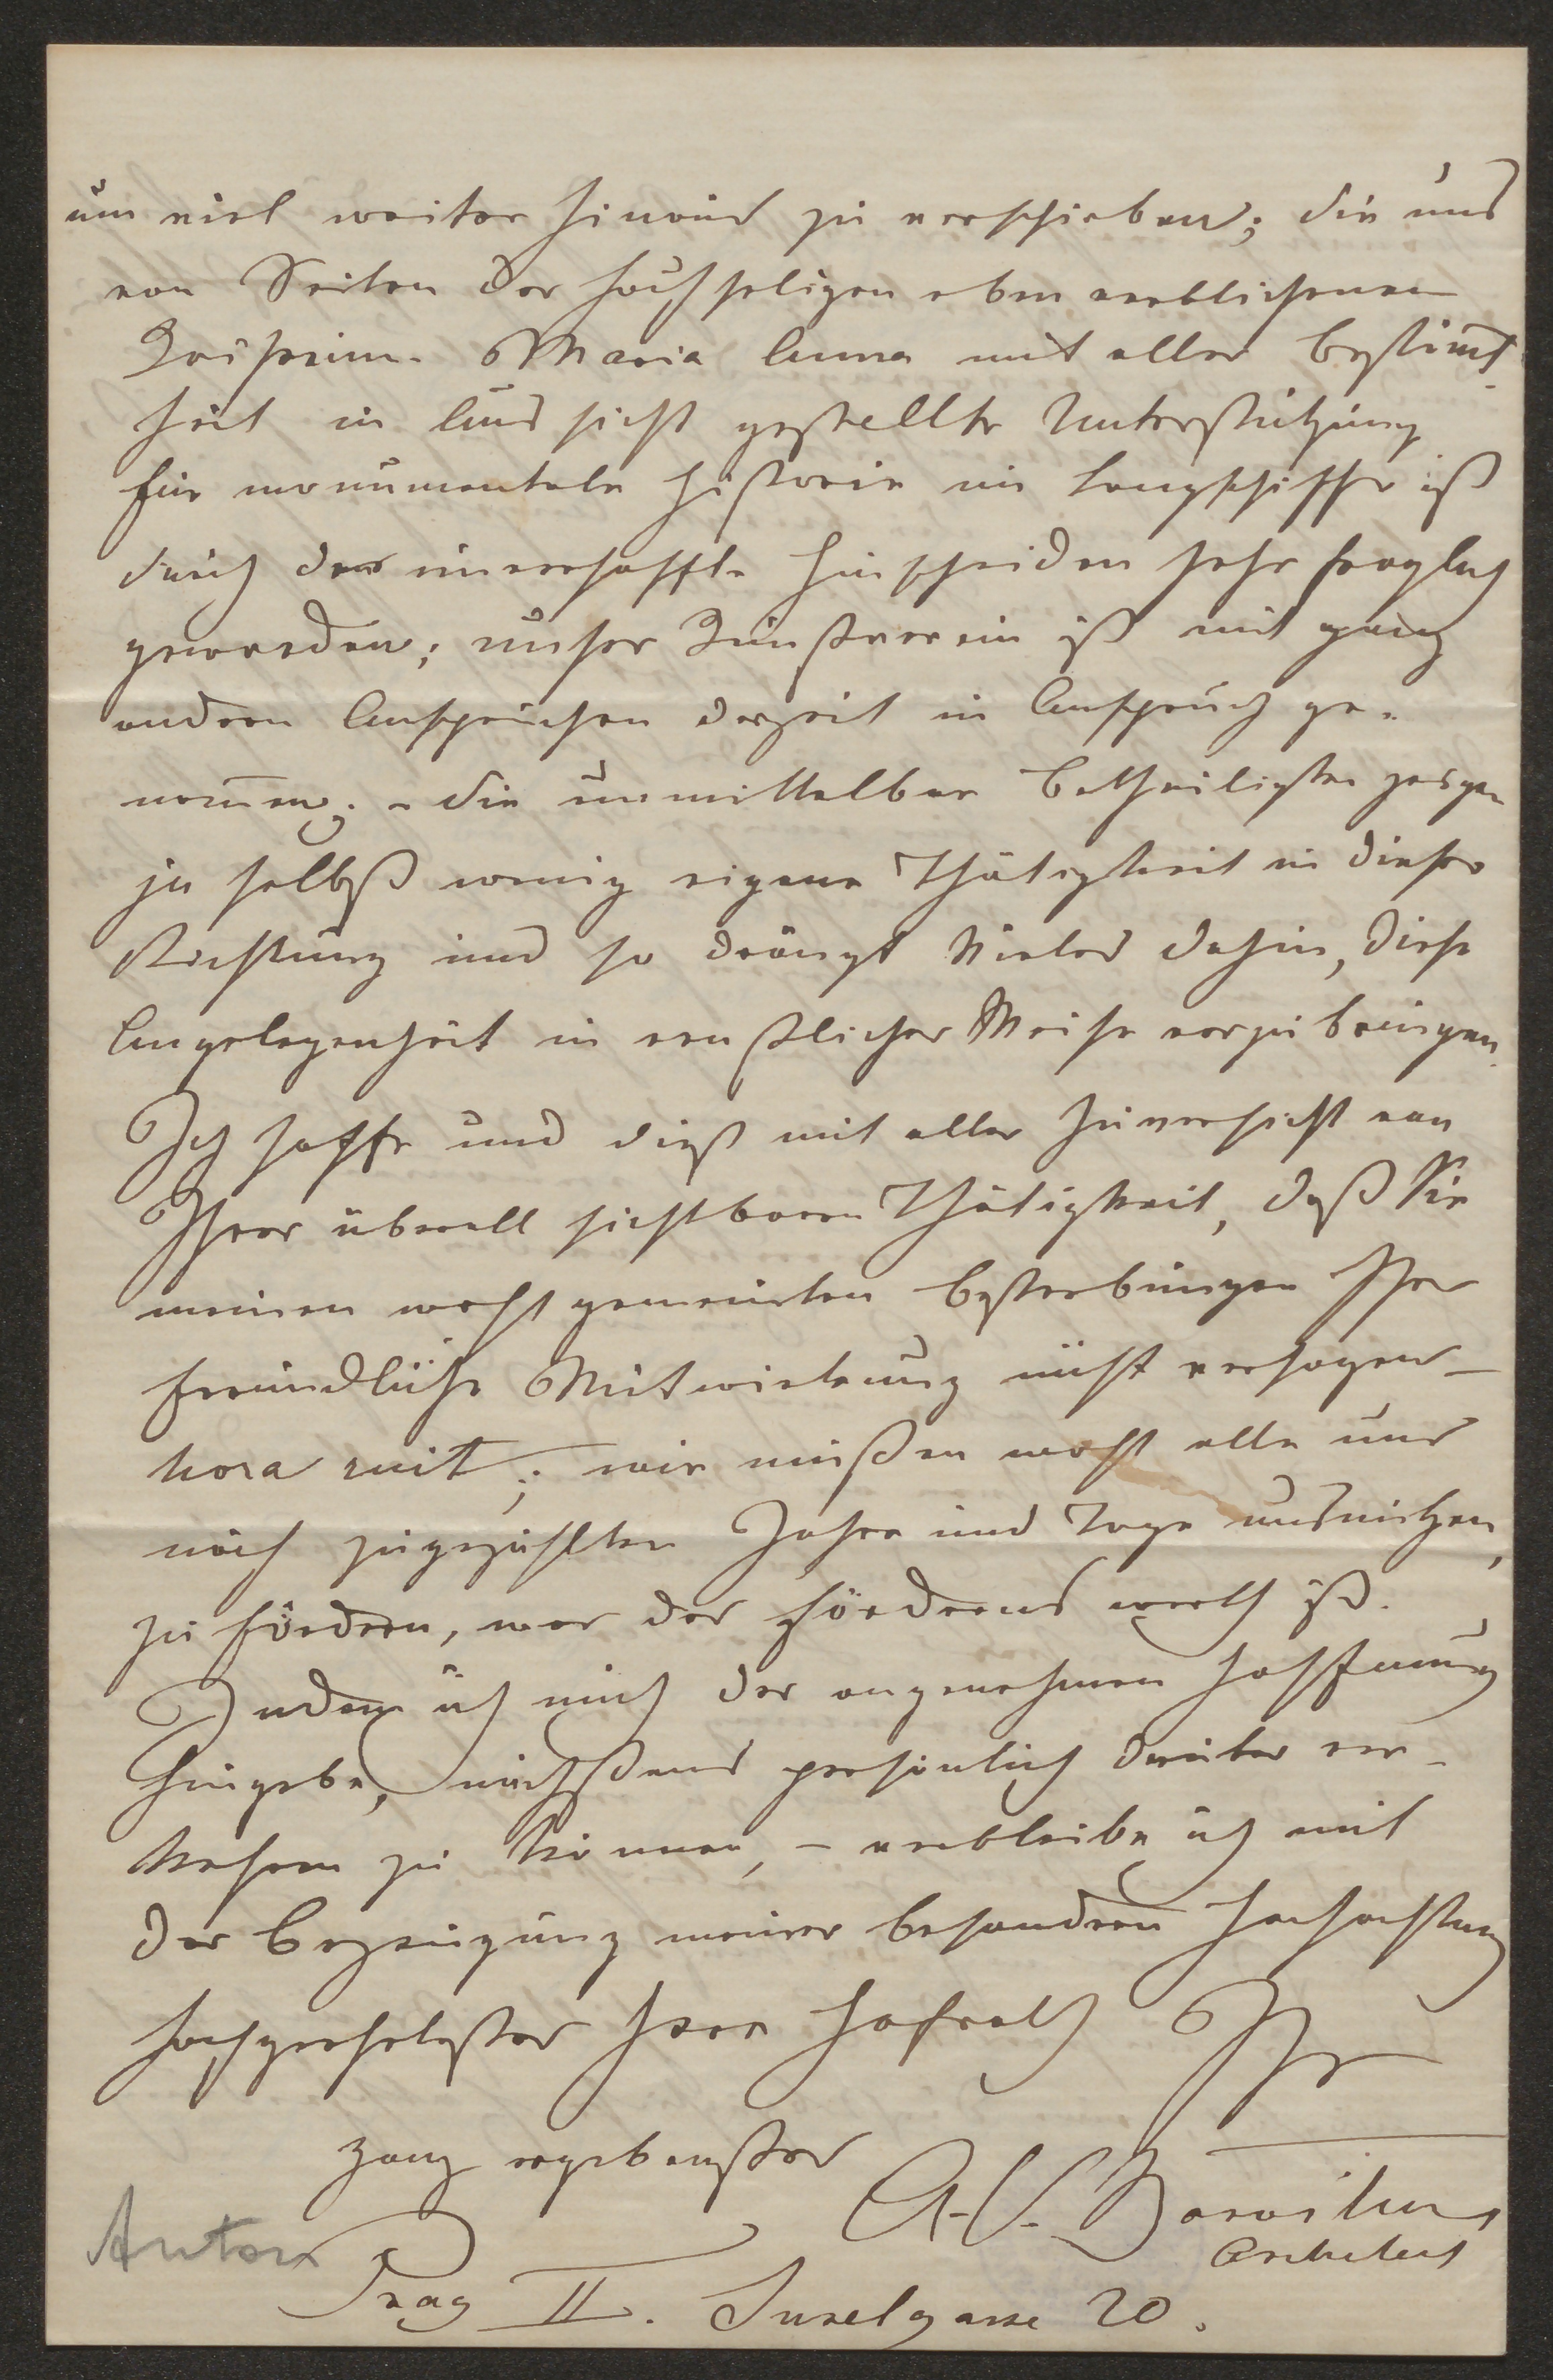 um viel weiter hinaus zu verschieben; die uns
von Seiten der hochseligen eben verblichenen
Kaiserin Maria Anna mit aller Bestim̄t-
heit in Aussicht gestellte Unterstützung
für monumentale Historie im Langschiffe ist
durch das unverhoffte Hinscheiden sehr fraglich
geworden; unser Kunstverein ist mit ganz
andern Ansprüchen derzeit in Anspruch ge-
nom̄en; – die unmittelbar Betheiligten zeigen
ja selbst wenig eigene Thätigkeit in dieser
Richtung und so drängt Vieles dahin, diese
Angelegenheit in ernstlicher Weise vorzubringen.
Ich hoffe und dieß mit aller Zuversicht von
Ihrer überall sichtbaren Thätigkeit, daß Sie
meinen wohlgemeinten Bestrebungen Ihre
freundliche Mitwirkung nicht versagen –
hora ruit; wir müßen wohl alle uns
noch zugezählten Jahre und Tage ausnützen,
zu fördern, was des Förderns werth ist.
Indem ich mich der angenehmen Hoffnung
hingebe, nächstens persönlich darüber ver-
kehren zu können, – verbleibe ich mit
der Bezeugung meiner besonderen Hochachtung
hochgeehrtester Herr Hofrath Ihr
ganz ergebenster
A. Barvitius
Architect
Anton
Prag II. Inselgasse 20.